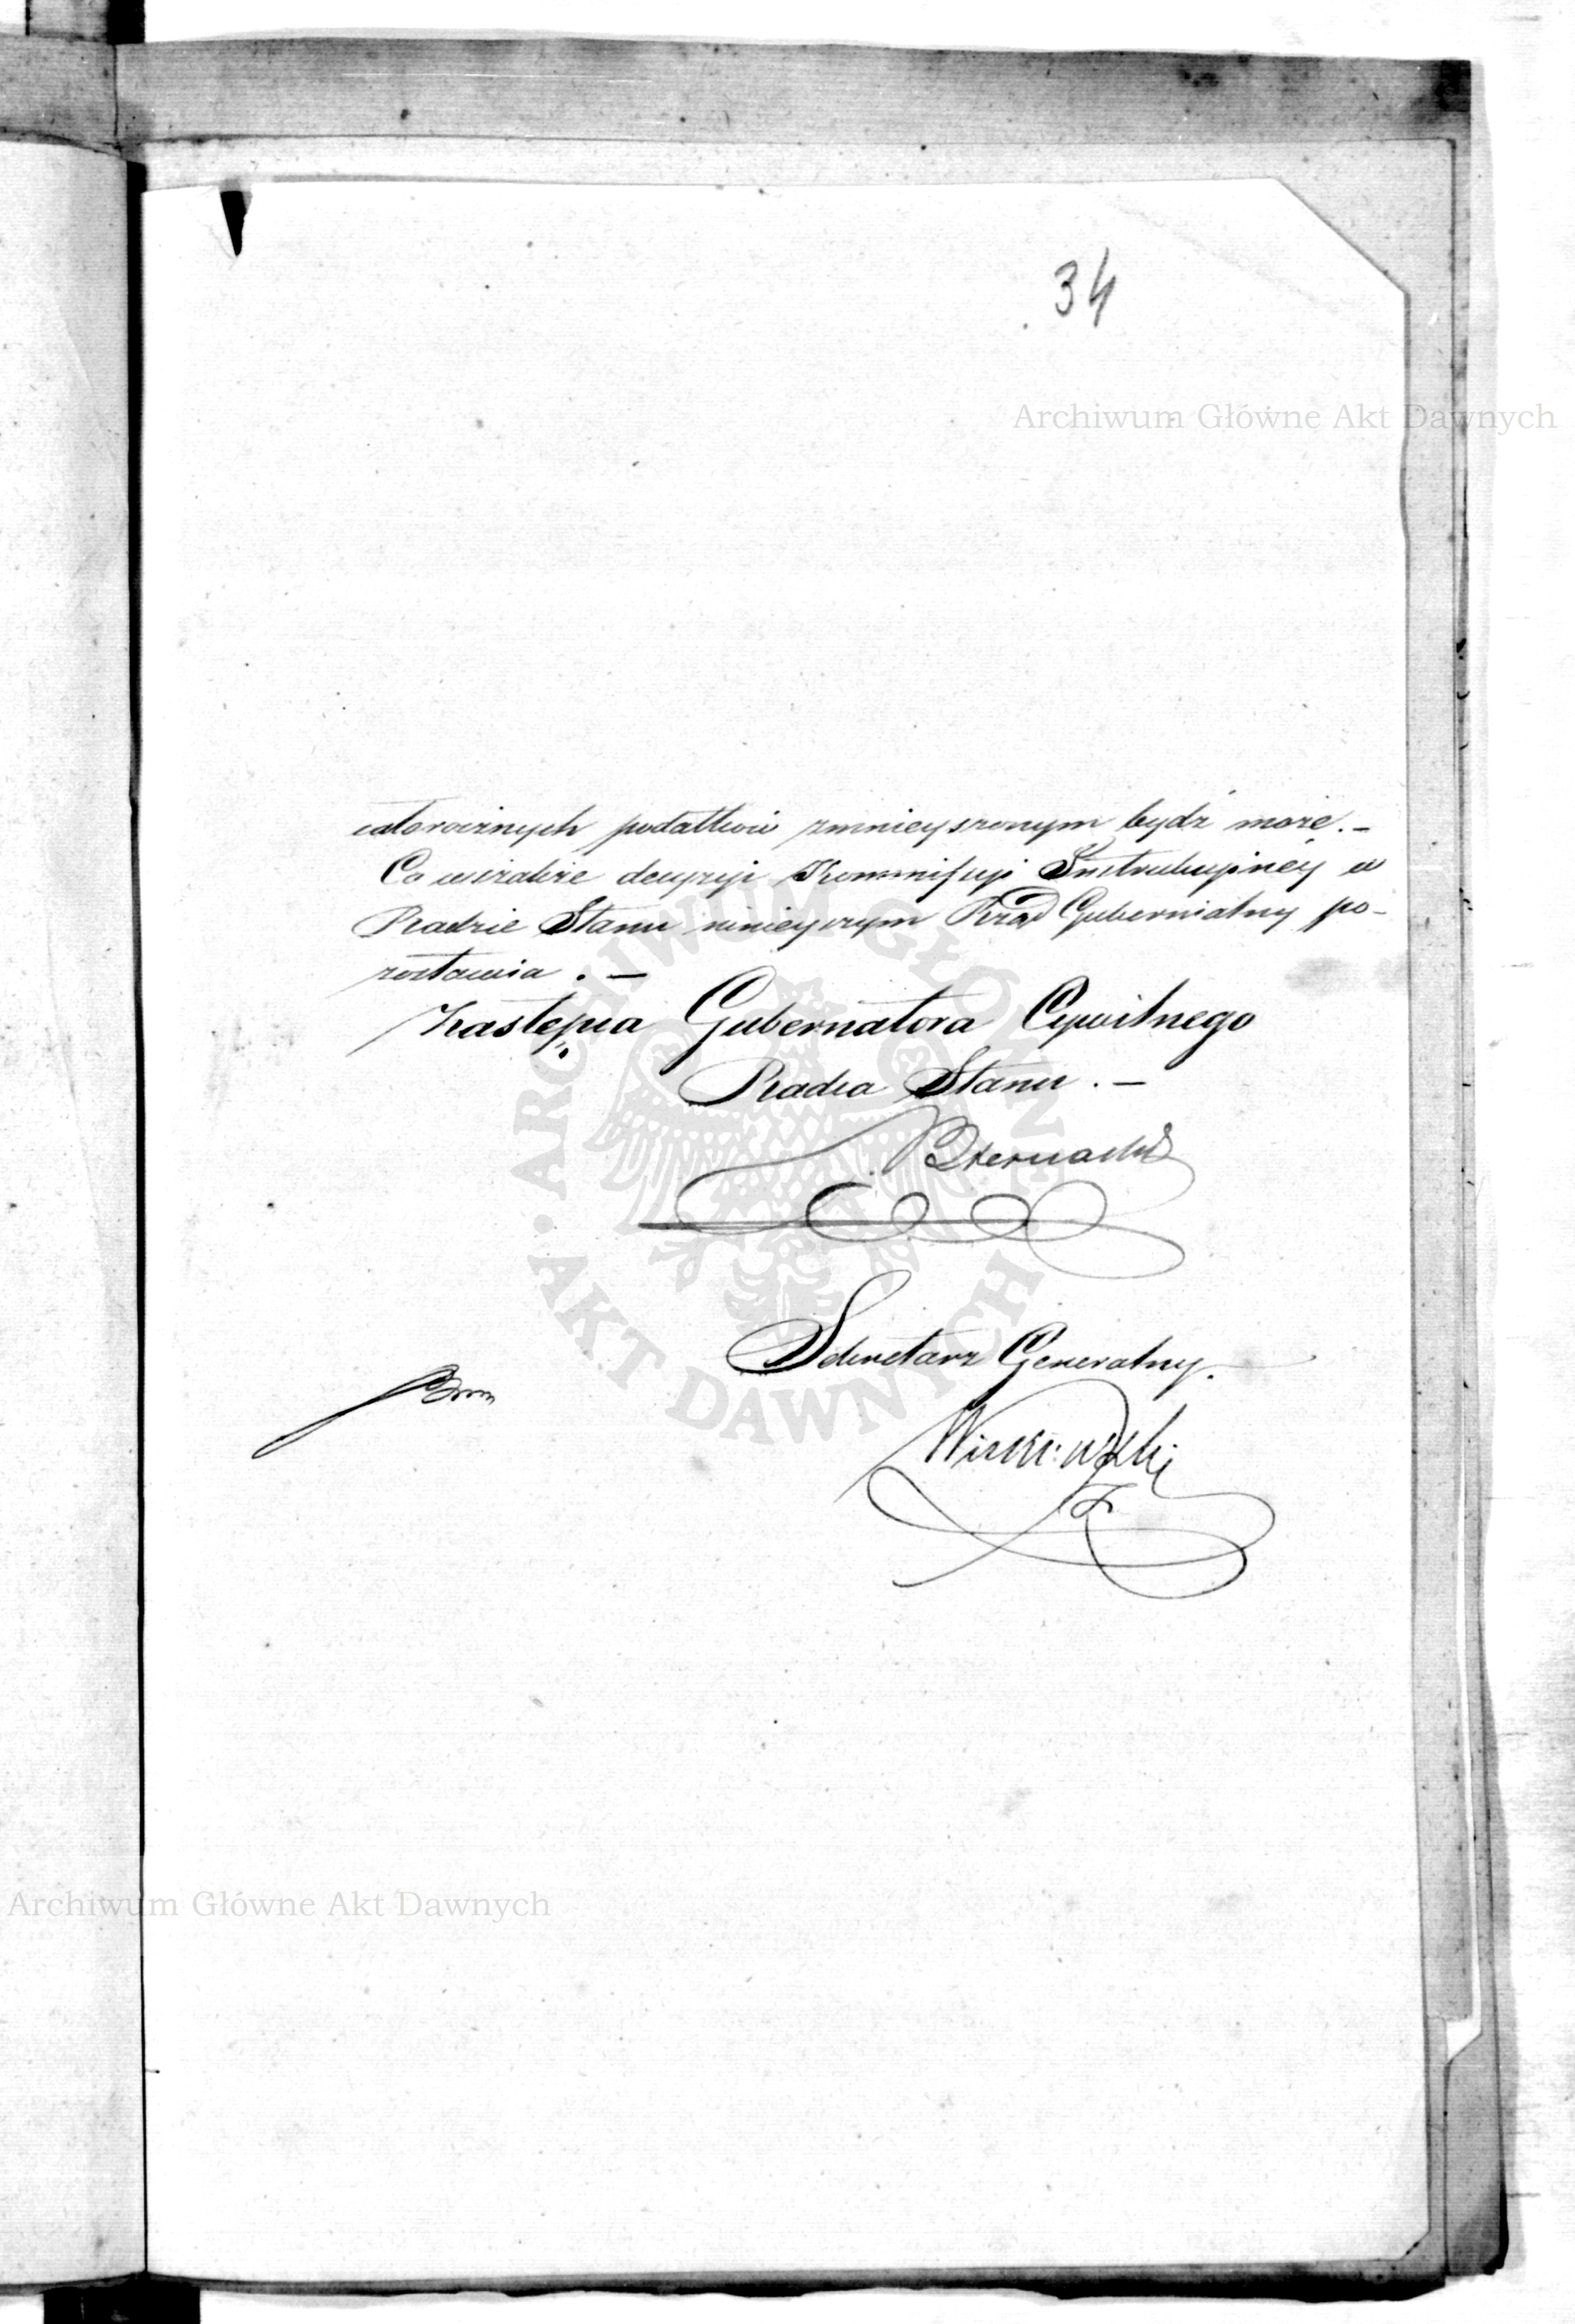 34
Archiwum Główne Akt Dawnych
całorocznych podatków zmnieyszonym bydź może. –
Co wszakże decyzyi Kommissyi Instrukcyinéy w
Radzie Stanu ninieyszym Rząd Gubernialny po-
zostawia . –
Zastępca Gubernatora Cywilnego
Radca Stanu . –
Biernacki
Sekretarz Generalny.
ARCHIWUM GŁÓWNE • AKT DAWNYCH •
Archiwum Główne Akt Dawnych